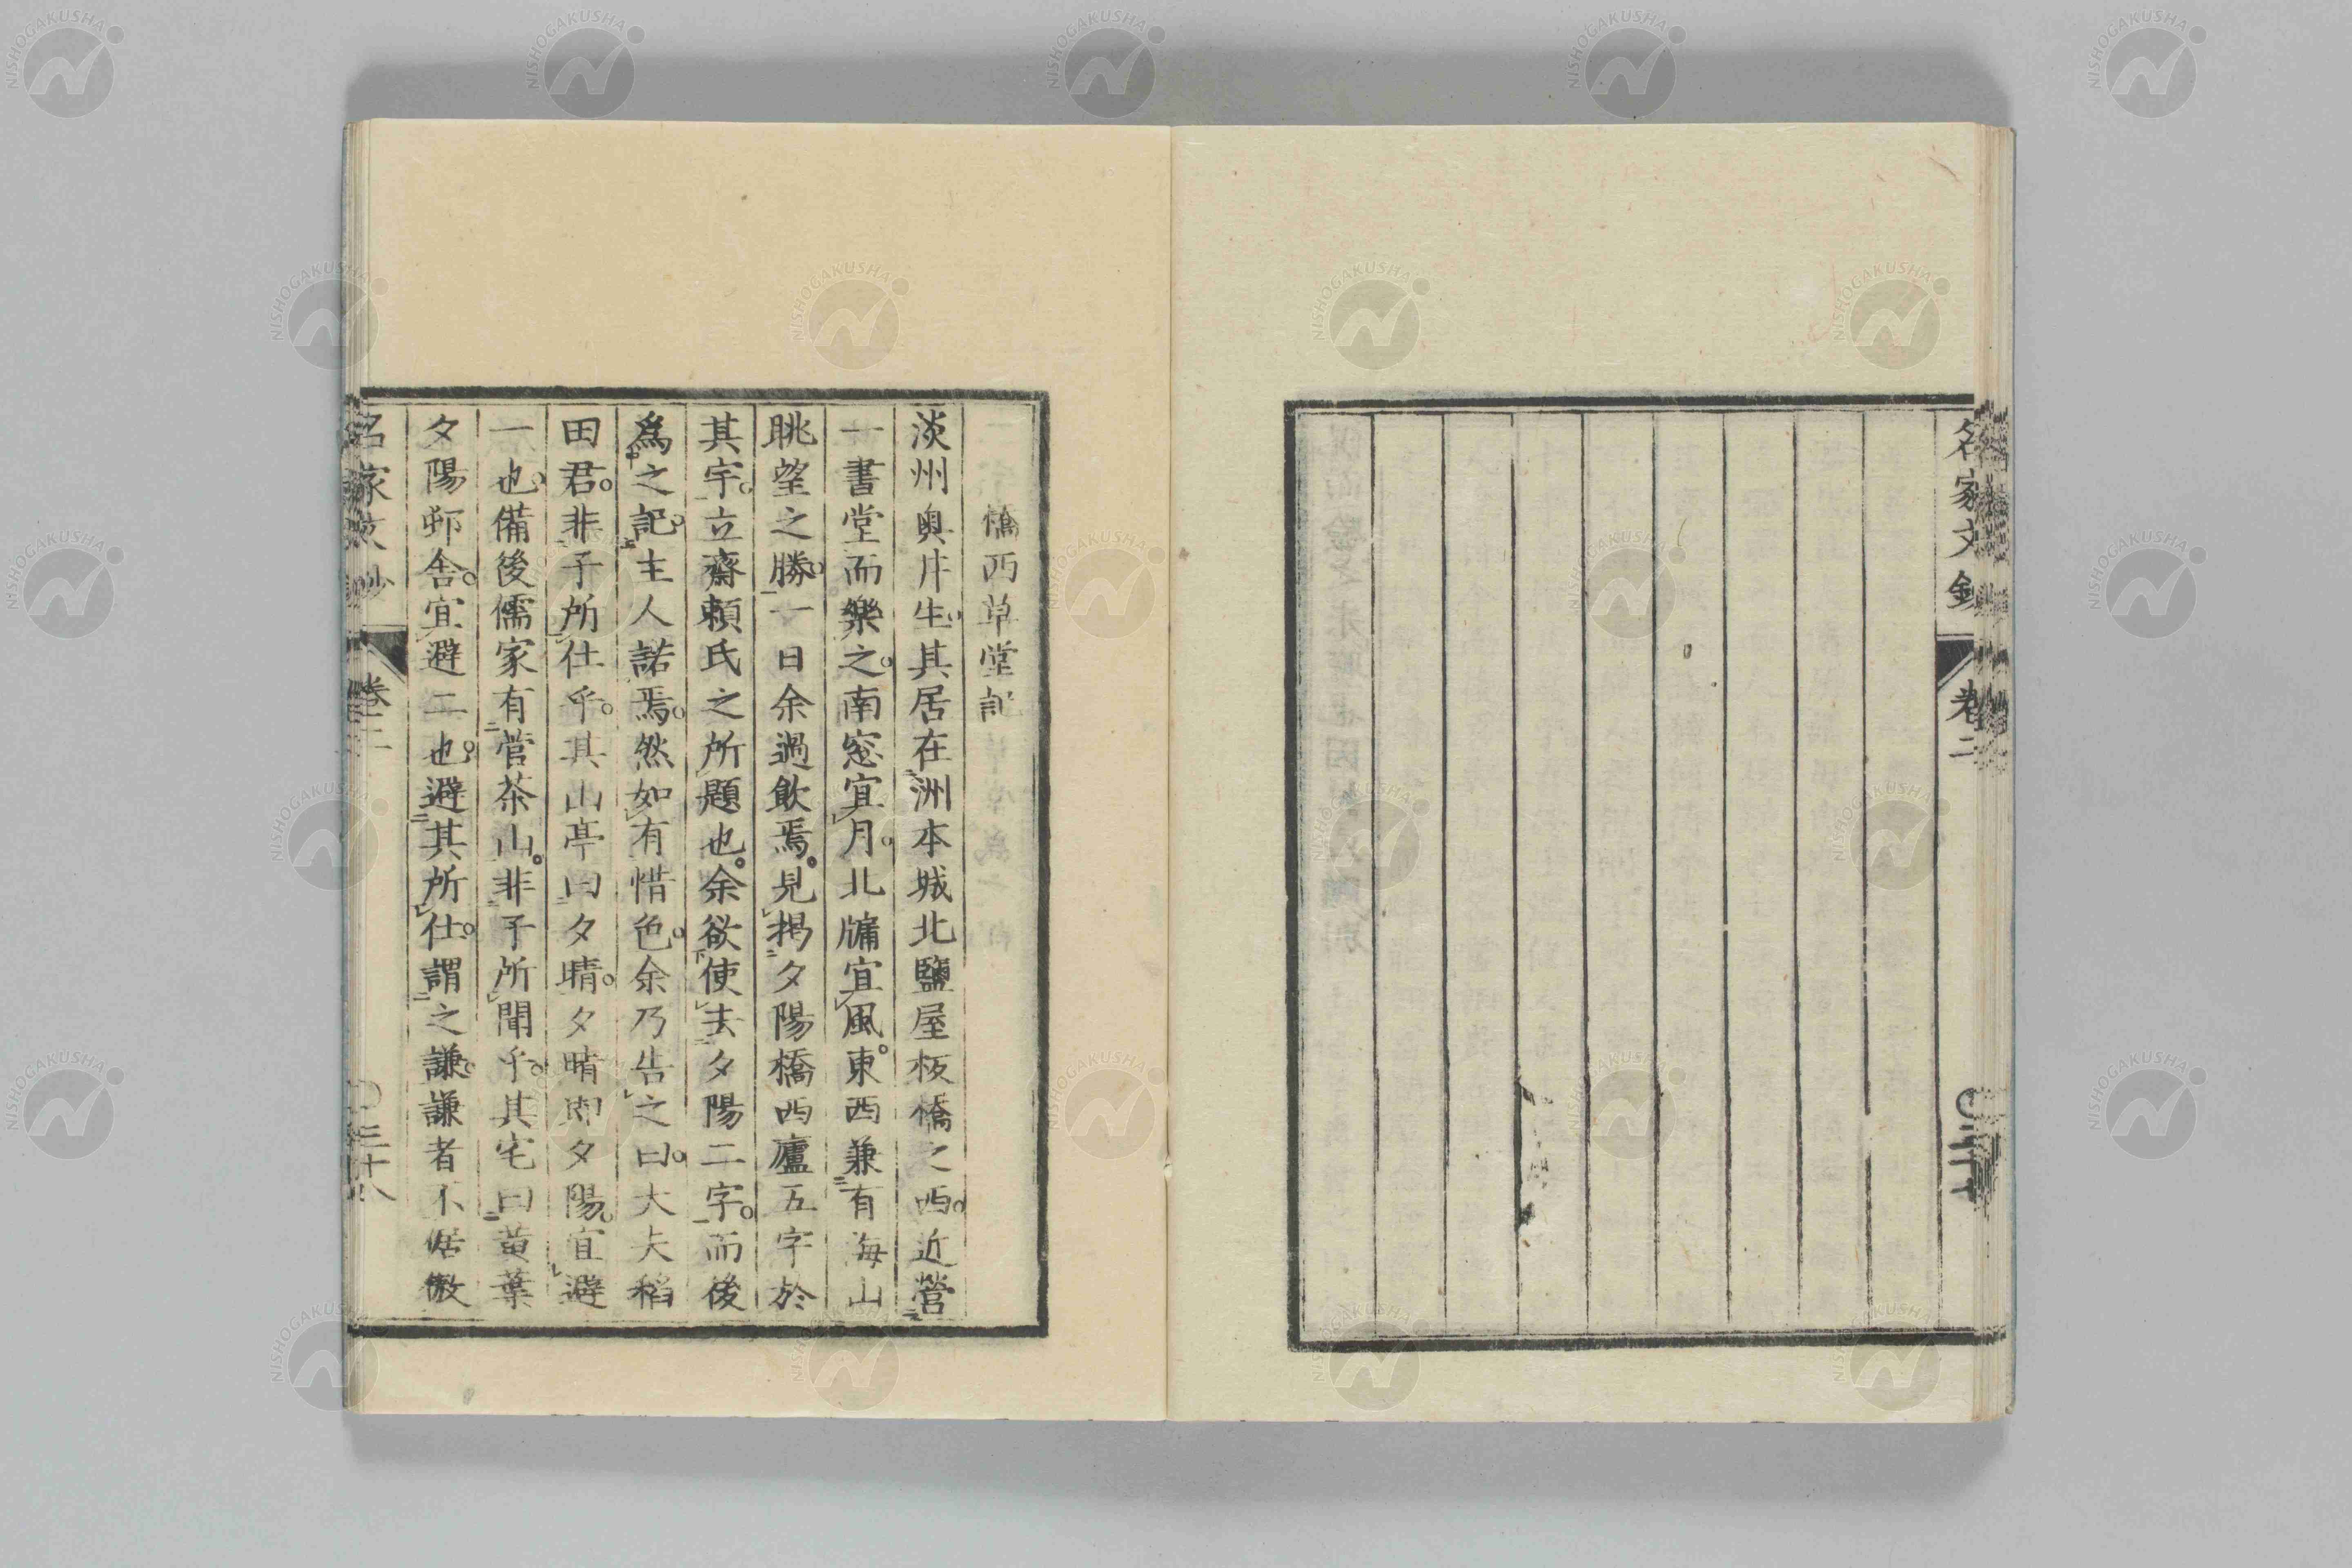 名家文鈔 卷二
橋西草堂記
淡州奥井生其居在洲本城北鹽屋板橋之西近營
一書堂而樂之南窓宜月北牖宜風東西兼有海山
眺望之勝一日余過飲焉見掲夕陽橋西廬五字於
其宇立齋頼氏之所題也余欲使去夕陽二字而後
爲之記主人諾焉然如有惜色余乃告之曰大夫稻
田君非予所仕乎其山亭曰夕晴夕晴卽夕陽宜避
一也備後儒家有菅茶山非予所聞乎其宅曰黄葉
夕陽邨舎宜避二也避其所仕謂之謙謙者不倨傲
名家文鈔 卷二 三十八
NISHOGAKUSHA